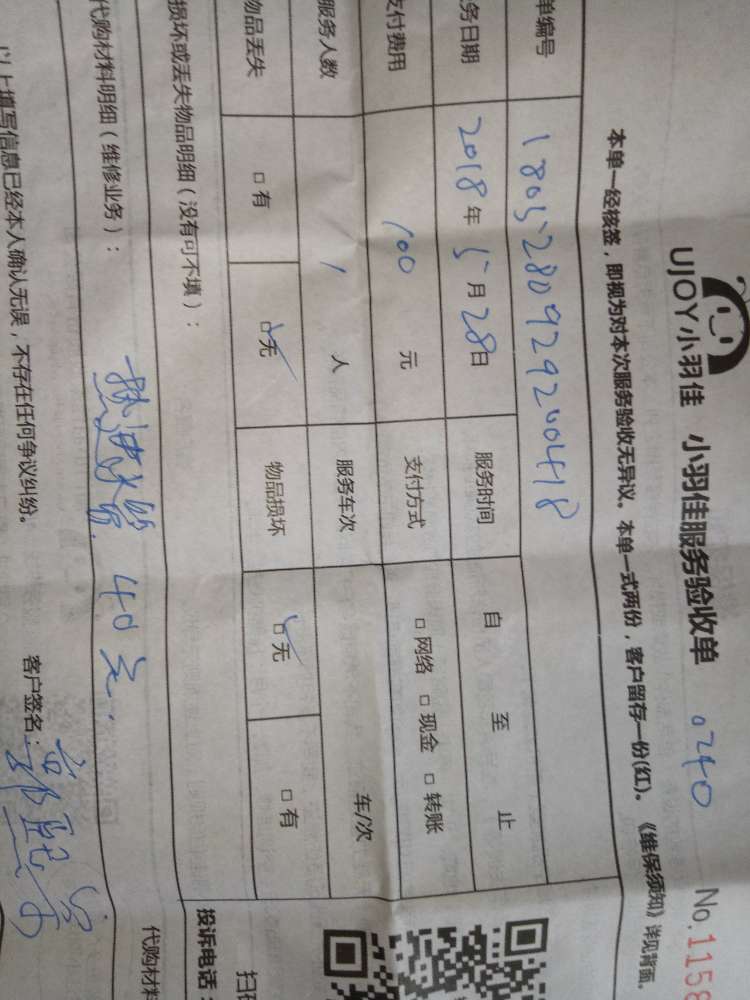 UJOY小羽佳 小羽佳服务验收单 0240 No.1158
本单一经核签，即视为对本次服务验收无异议。本单一式两份，客户留存一份(红)。《维保须知》详见背面。
单编号 1805280929200418
务日期 2018年5月28日 服务时间 自 至 止
支付费用 100元 支付方式 □网络 □现金 □转账
服务人数 1人 服务车次 车/次
物品丢失 □有 ☑无 物品损坏 ☑无 □有
损坏或丢失物品明细（没有可不填）：
投诉电话：
代购材料明细（维修业务）： 40元.
代购材料
以上填写信息已经本人确认无误，不存在任何争议纠纷。 客户签名：